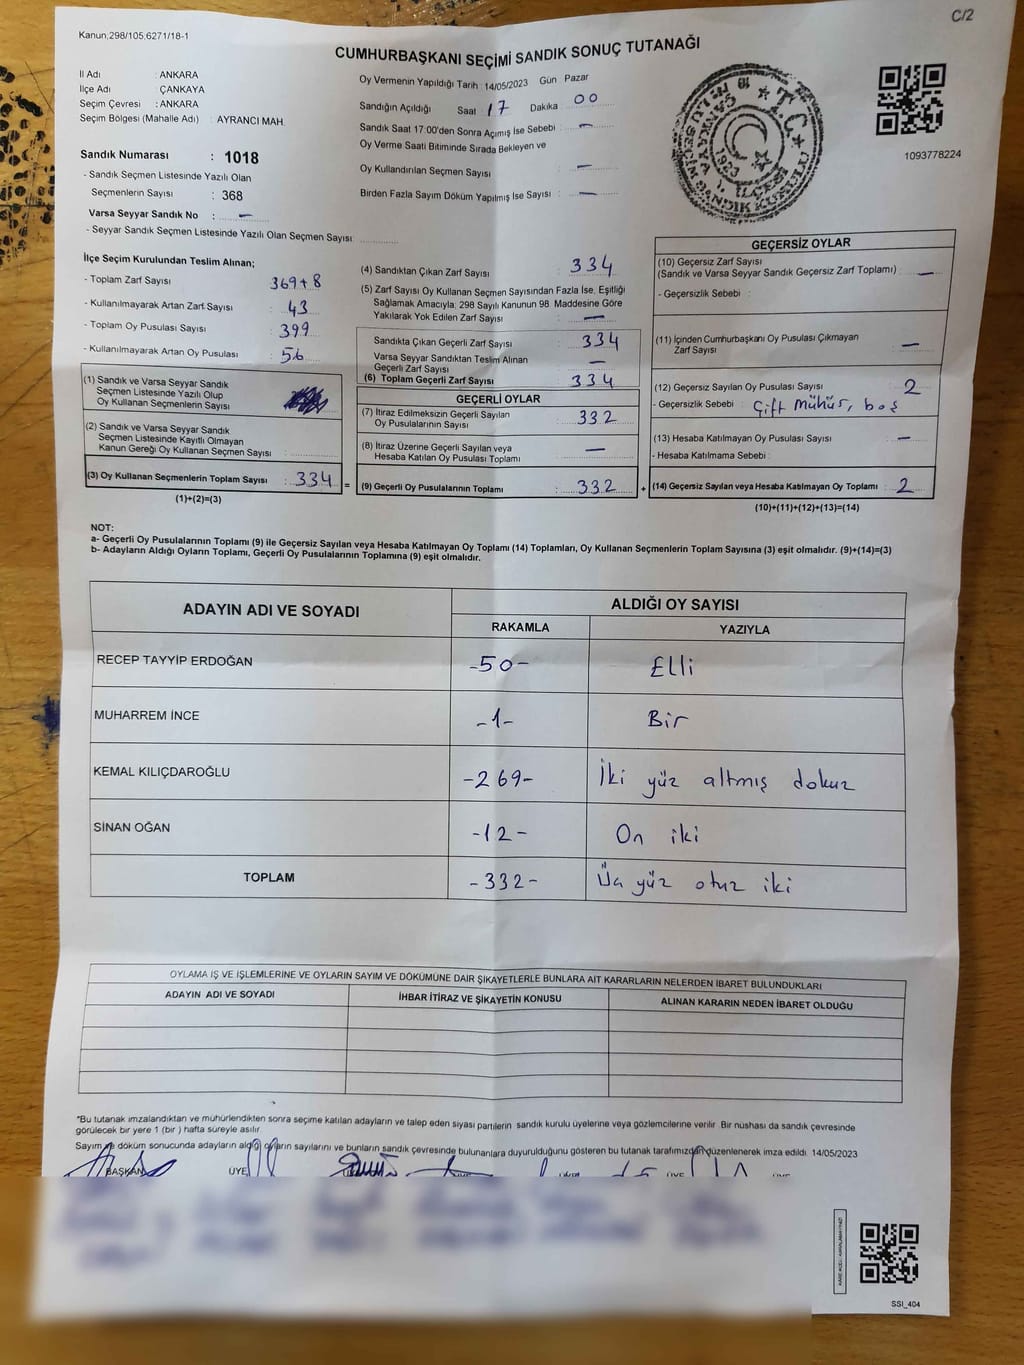 C/2
Kanun;298/105.6271/18-1
CUMHURBAŞKANI SEÇİMİ SANDIK SONUÇ TUTANAĞI
İl Adı : ANKARA
İlçe Adı : ÇANKAYA
Seçim Çevresi : ANKARA
Seçim Bölgesi (Mahalle Adı) : AYRANCI MAH.
Sandık Numarası : 1018
- Sandık Seçmen Listesinde Yazılı Olan
Seçmenlerin Sayısı : 368
Varsa Seyyar Sandık No : —
- Seyyar Sandık Seçmen Listesinde Yazılı Olan Seçmen Sayısı:
Oy Vermenin Yapıldığı Tarih : 14/05/2023 Gün Pazar
Sandığın Açıldığı Saat 17 Dakika 00
Sandık Saat 17:00'den Sonra Açımış İse Sebebi : —
Oy Verme Saati Bitiminde Sırada Bekleyen ve
Oy Kullandırılan Seçmen Sayısı : —
Birden Fazla Sayım Döküm Yapılmış İse Sayısı : —
T.C.
1093778224
İlçe Seçim Kurulundan Teslim Alınan;
- Toplam Zarf Sayısı : 369+8
- Kullanılmayarak Artan Zarf Sayısı : 43
- Toplam Oy Pusulası Sayısı : 399
- Kullanılmayarak Artan Oy Pusulası : 56
(1) Sandık ve Varsa Seyyar Sandık
Seçmen Listesinde Yazılı Olup
Oy Kullanan Seçmenlerin Sayısı :
(2) Sandık ve Varsa Seyyar Sandık
Seçmen Listesinde Kayıtlı Olmayan
Kanun Gereği Oy Kullanan Seçmen Sayısı :
(3) Oy Kullanan Seçmenlerin Toplam Sayısı : 334 =
(1)+(2)=(3)
(4) Sandıktan Çıkan Zarf Sayısı : 334
(5) Zarf Sayısı Oy Kullanan Seçmen Sayısından Fazla İse, Eşitliği
Sağlamak Amacıyla; 298 Sayılı Kanunun 98. Maddesine Göre
Yakılarak Yok Edilen Zarf Sayısı : —
Sandıkta Çıkan Geçerli Zarf Sayısı : 334
Varsa Seyyar Sandıktan Teslim Alınan
Geçerli Zarf Sayısı : —
(6) Toplam Geçerli Zarf Sayısı : 334
GEÇERLİ OYLAR
(7) İtiraz Edilmeksizin Geçerli Sayılan
Oy Pusulalarının Sayısı : 332
(8) İtiraz Üzerine Geçerli Sayılan veya
Hesaba Katılan Oy Pusulası Toplamı : —
(9) Geçerli Oy Pusulalarının Toplamı : 332 +
GEÇERSİZ OYLAR
(10) Geçersiz Zarf Sayısı
(Sandık ve Varsa Seyyar Sandık Geçersiz Zarf Toplamı) : —
- Geçersizlik Sebebi :
(11) İçinden Cumhurbaşkanı Oy Pusulası Çıkmayan
Zarf Sayısı : —
(12) Geçersiz Sayılan Oy Pusulası Sayısı : 2
- Geçersizlik Sebebi : Çift Mühür, boş
(13) Hesaba Katılmayan Oy Pusulası Sayısı : —
- Hesaba Katılmama Sebebi :
(14) Geçersiz Sayılan veya Hesaba Katılmayan Oy Toplamı : 2
(10)+(11)+(12)+(13)=(14)
NOT:
a- Geçerli Oy Pusulalarının Toplamı (9) ile Geçersiz Sayılan veya Hesaba Katılmayan Oy Toplamı (14) Toplamları, Oy Kullanan Seçmenlerin Toplam Sayısına (3) eşit olmalıdır. (9)+(14)=(3)
b- Adayların Aldığı Oyların Toplamı, Geçerli Oy Pusulalarının Toplamına (9) eşit olmalıdır.
ADAYIN ADI VE SOYADI
ALDIĞI OY SAYISI
RAKAMLA YAZIYLA
RECEP TAYYİP ERDOĞAN -50- Elli
MUHARREM İNCE -1- Bir
KEMAL KILIÇDAROĞLU -269- İki yüz altmış dokuz
SİNAN OĞAN -12- On iki
TOPLAM -332- Üç yüz otuz iki
OYLAMA İŞ VE İŞLEMLERİNE VE OYLARIN SAYIM VE DÖKÜMÜNE DAİR ŞİKAYETLERLE BUNLARA AİT KARARLARIN NELERDEN İBARET BULUNDUKLARI
ADAYIN ADI VE SOYADI İHBAR İTİRAZ VE ŞİKAYETİN KONUSU ALINAN KARARIN NEDEN İBARET OLDUĞU
*Bu tutanak imzalandıktan ve mühürlendikten sonra seçime katılan adayların ve talep eden siyasi partilerin sandık kurulu üyelerine veya gözlemcilerine verilir. Bir nüshası da sandık çevresinde
görülecek bir yere 1 (bir ) hafta süreyle asılır.
Sayım ve döküm sonucunda adayların aldığı oyların sayılarını ve bunların sandık çevresinde bulunanlara duyurulduğunu gösteren bu tutanak tarafımızdan düzenlenerek imza edildi. 14/05/2023
BAŞKAN ÜYE ÜYE
SSI_404